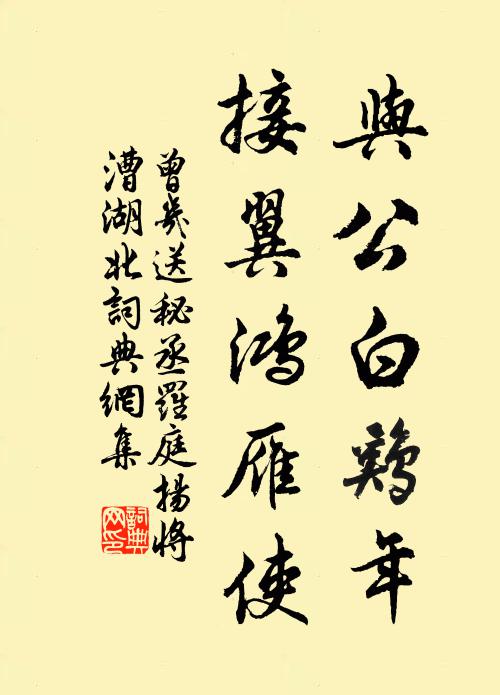 與公白鷄年
接翼鴻雁使
曾幾送秘丞羅庭揚將
漕湖北詞典網集
詞典网印